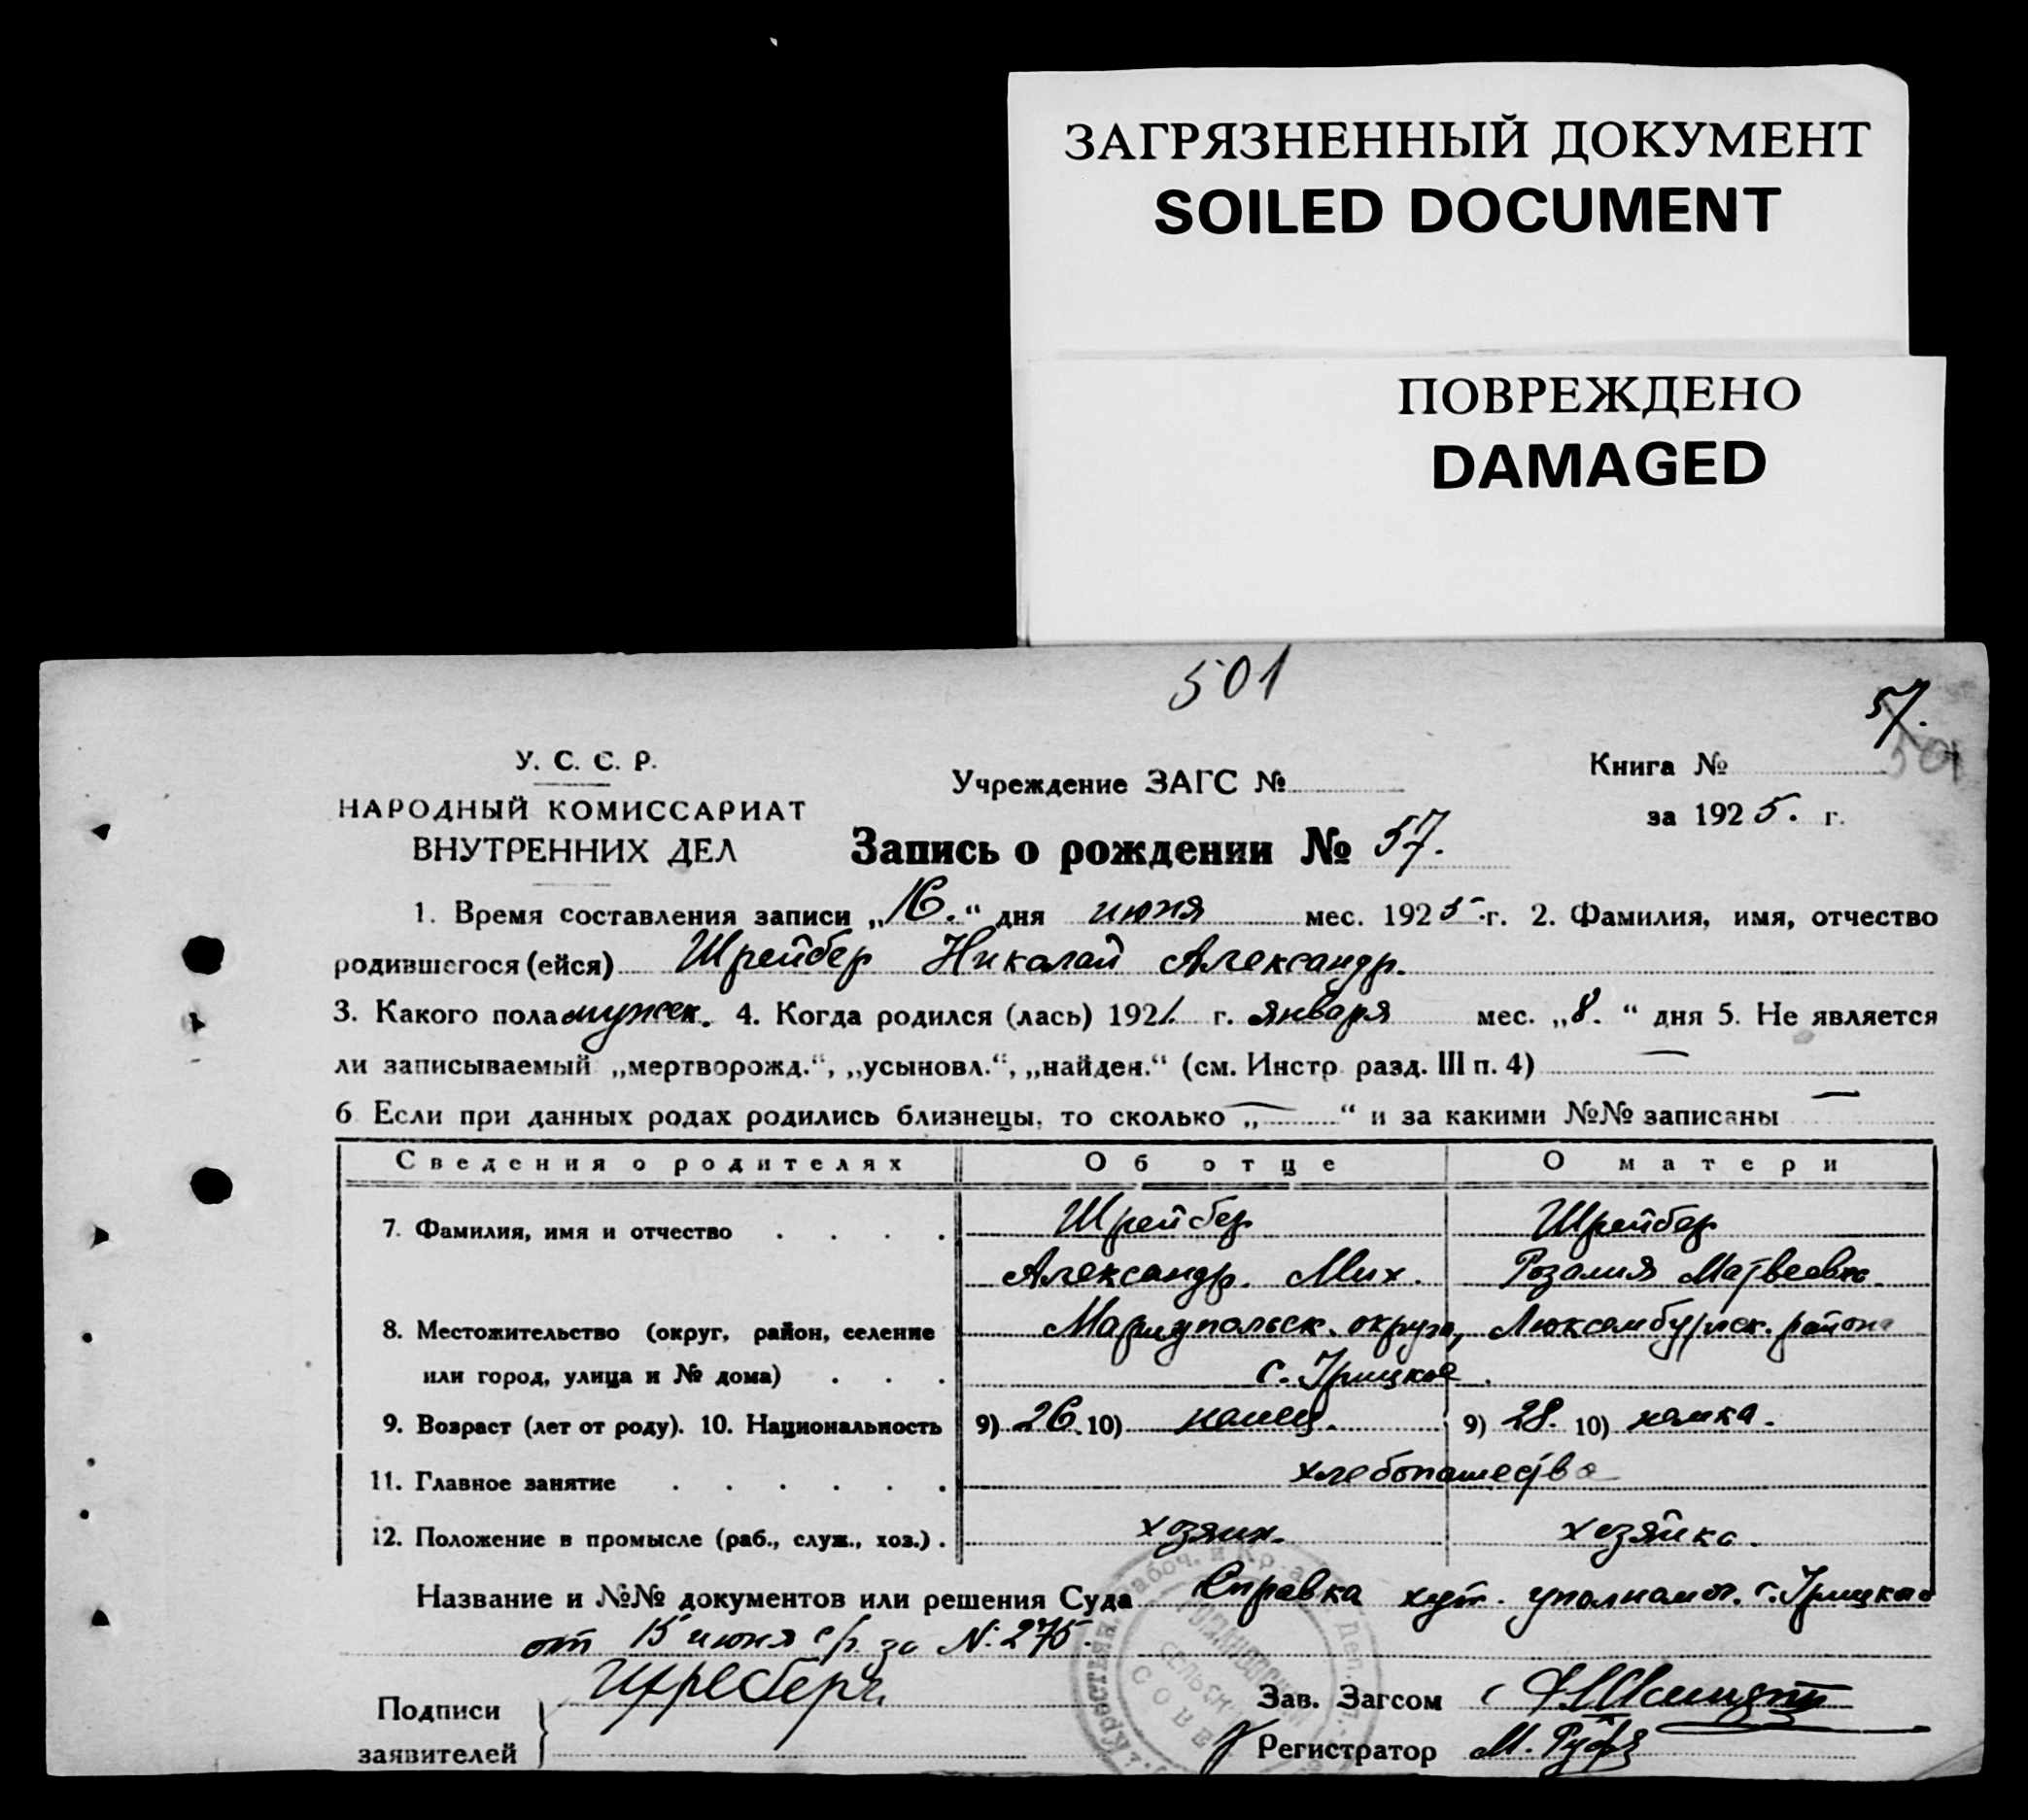 ЗАГРЯЗНЕННЫЙ ДОКУМЕНТ
SOILED DOCUMENT
ПОВРЕЖДЕНО
DAMAGED
501
57.
501
У. С. С. Р.
НАРОДНЫЙ КОМИССАРИАТ
ВНУТРЕННИХ ДЕЛ
Учреждение ЗАГС №
Книга №
за 1925. г.
Запись о рождении № 57.
1. Время составления записи „16.“ дня июня мес. 1925 г. 2. Фамилия, имя, отчество
родившегося (ейся) Шрейбер Николай Александр.
3. Какого пола мужск. 4. Когда родился (лась) 1921. г. января мес. „8.“ дня 5. Не является
ли записываемый „мертворожд.“, „усыновл.“, „найден.“ (см. Инстр. разд. III п. 4) —
6 Если при данных родах родились близнецы, то сколько „—“ и за какими №№ записаны —
Сведения о родителях Об отце О матери
7. Фамилия, имя и отчество . . . . Шрейбер Шрейбер
Александр. Мих. Розалия Матвеевна.
8. Местожительство (округ, район, селение Мариупольск. округа, Люксембургск. района
или город, улица и № дома) . . . с. Грицкое.
9. Возраст (лет от роду). 10. Национальность 9) 26. 10) немец. 9) 28. 10) немка.
11. Главное занятие . . . . . . хлебопашество
12. Положение в промысле (раб., служ., хоз.) . хозяин. хозяйка.
Название и №№ документов или решения Суда Справка хут. уполномоч. с. Грицкое
от 15 июня с/г. за №. 275.
Подписи
заявителей
Зав. Загсом
Регистратор М.
Рабоч. Крестьян. Деп. Сельск. Совет